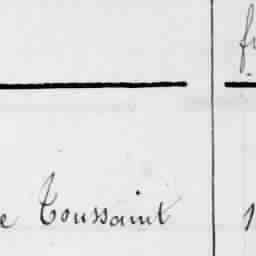 e Toussaint